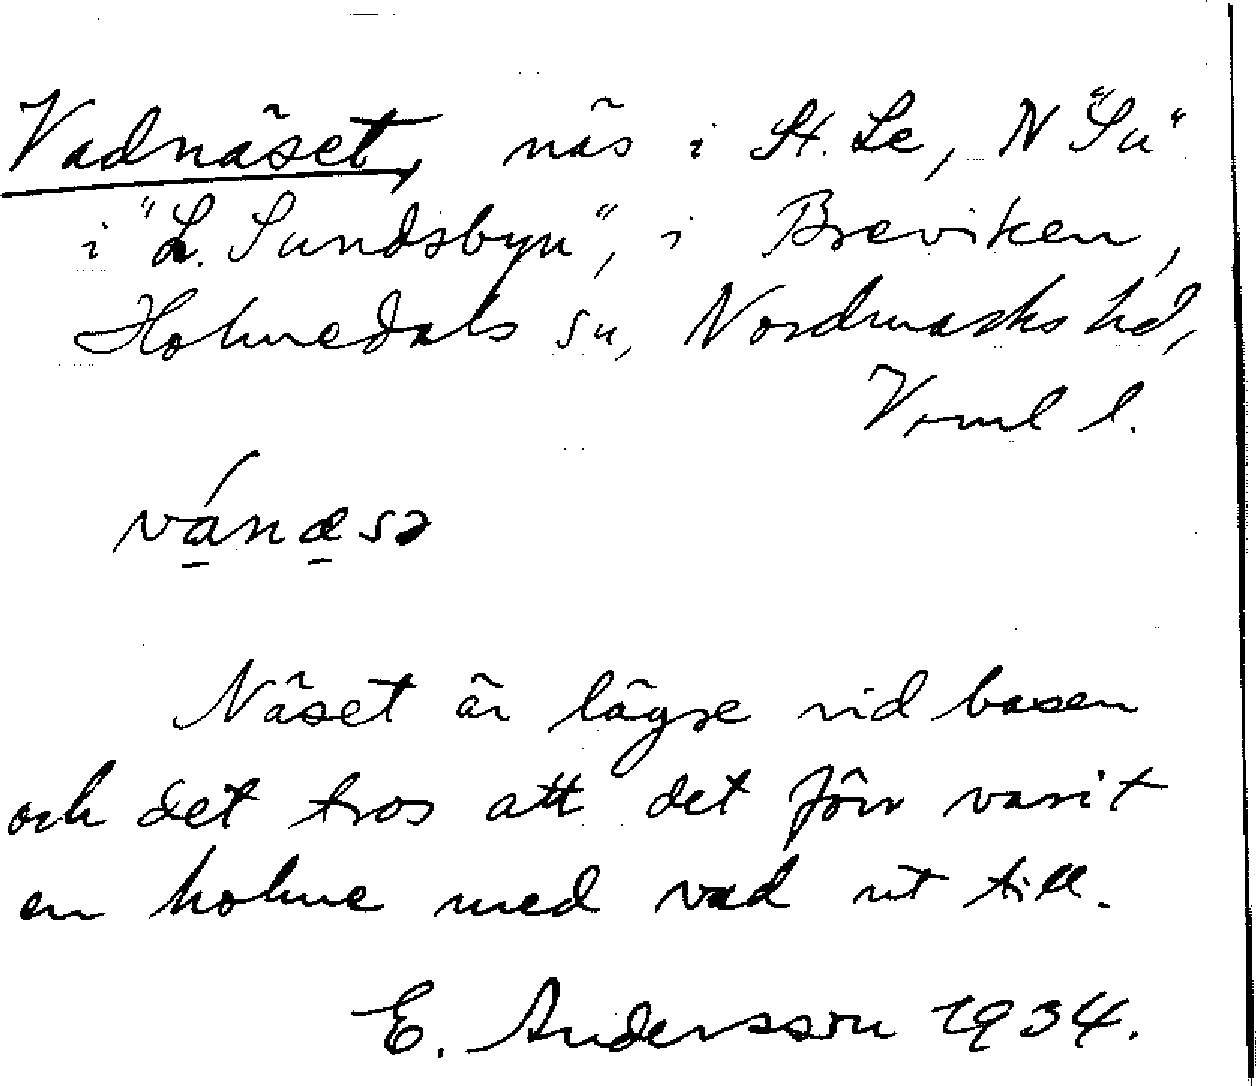 Vadnäset, näs i St. Le, N "Su"
i "L. Sundsbyn", i Breviken,
Holmedals sn, Nordmarks hd,
Vrml l.
vánæsə
Näset är lägre vid basen
och det tros att det förr varit
en holme med vad ut till.
E. Andersson 1934.